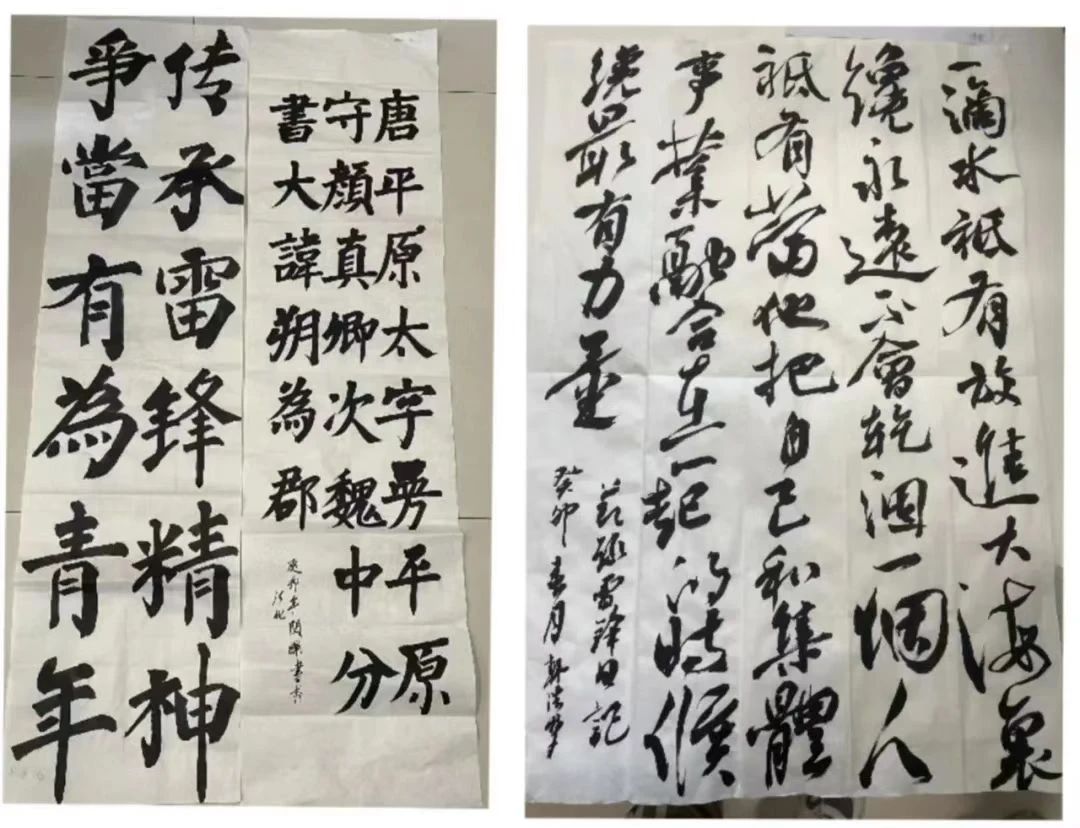 传承雷锋精神
爭當有為青年
唐平原太字曼平原
守顏真卿次魏中分
書大諱朔為郡
癸卯年
一滴水祇有放進大海裏
纔永遠不會乾涸一個人
祇有當他把自己和集體
事業融合在一起的時候
纔最有力量
節録雷鋒日記
癸卯春月